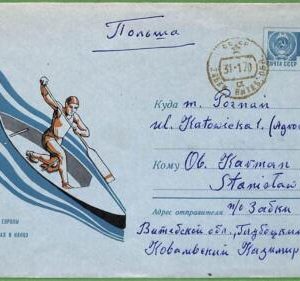 Польша
ПОЧТА СССР
31-1 70
Куда т. Poznań
ul. Katowicka 1.
Кому Ob. Karman
Stanisław
Адрес отправителя п/о Забки
Витебской обл.,
Ковалевский Казимир
ЕВРОПЫ
И КАНОЭ